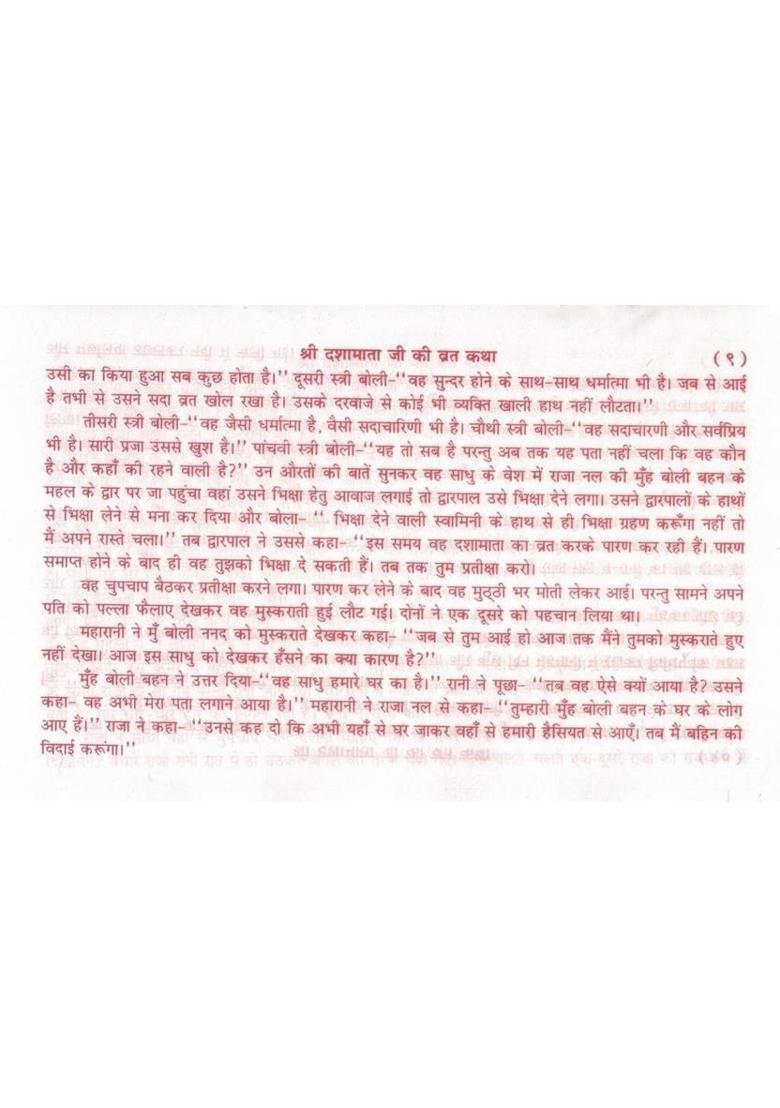 श्री दशामाता जी की व्रत कथा (९)
उसी का किया हुआ सब कुछ होता है।'' दूसरी स्त्री बोली-''वह सुन्दर होने के साथ-साथ धर्मात्मा भी है। जब से आई
है तभी से उसने सदा व्रत खोल रखा है। उसके दरवाजे से कोई भी व्यक्ति खाली हाथ नहीं लौटता।''
तीसरी स्त्री बोली-''वह जैसी धर्मात्मा है, वैसी सदाचारिणी भी है। चौथी स्त्री बोली-''वह सदाचारणी और सर्वप्रिय
भी है। सारी प्रजा उससे खुश है।'' पांचवी स्त्री बोली-''यह तो सब है परन्तु अब तक यह पता नहीं चला कि वह कौन
है और कहाँ की रहने वाली है?'' उन औरतों की बातें सुनकर वह साधु के वेश में राजा नल की मुँह बोली बहन के
महल के द्वार पर जा पहुंचा वहां उसने भिक्षा हेतु आवाज लगाई तो द्वारपाल उसे भिक्षा देने लगा। उसने द्वारपालों के हाथों
से भिक्षा लेने से मना कर दिया और बोला- '' भिक्षा देने वाली स्वामिनी के हाथ से ही भिक्षा ग्रहण करूँगा नहीं तो
मैं अपने रास्ते चला।'' तब द्वारपाल ने उससे कहा-''इस समय वह दशामाता का व्रत करके पारण कर रही हैं। पारण
समाप्त होने के बाद ही वह तुझको भिक्षा दे सकती हैं। तब तक तुम प्रतीक्षा करो।
वह चुपचाप बैठकर प्रतीक्षा करने लगा। पारण कर लेने के बाद वह मुट्ठी भर मोती लेकर आई। परन्तु सामने अपने
पति को पल्ला फैलाए देखकर वह मुस्कराती हुई लौट गई। दोनों ने एक दूसरे को पहचान लिया था।
महारानी ने मुँ बोली ननद को मुस्कराते देखकर कहा- ''जब से तुम आई हो आज तक मैंने तुमको मुस्कराते हुए
नहीं देखा। आज इस साधु को देखकर हँसने का क्या कारण है?''
मुँह बोली बहन ने उत्तर दिया-''वह साधु हमारे घर का है।'' रानी ने पूछा-''तब वह ऐसे क्यों आया है? उसने
कहा- वह अभी मेरा पता लगाने आया है।'' महारानी ने राजा नल से कहा- ''तुम्हारी मुँह बोली बहन के घर के लोग
आए हैं।'' राजा ने कहा-''उनसे कह दो कि अभी यहाँ से घर जाकर वहाँ से हमारी हैसियत से आएँ। तब मैं बहिन की
विदाई करूंगा।''